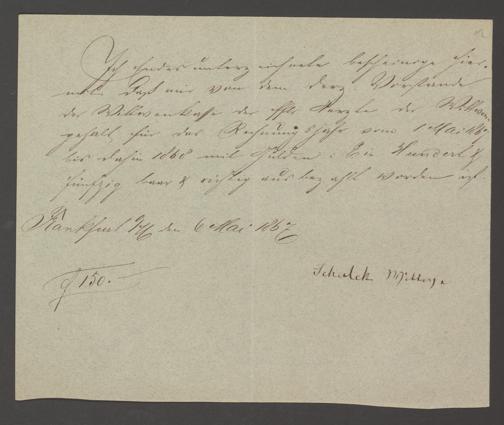 Ich endes unterzeichnete bescheinige hier-
mit daß mir von dem Vorstande
der Wittwenkasse der Aerzte der Wittwen-
gehalt für das Rechnungsjahr vom 1 Mai 1867
bis dahin 1868 mit Gulden: Ein Hundert &
fünfzig baar & richtig ausbezahlt worden ist.
Frankfurt a/M den 6 Mai 1867
f 150.-
Schalck Wittwe